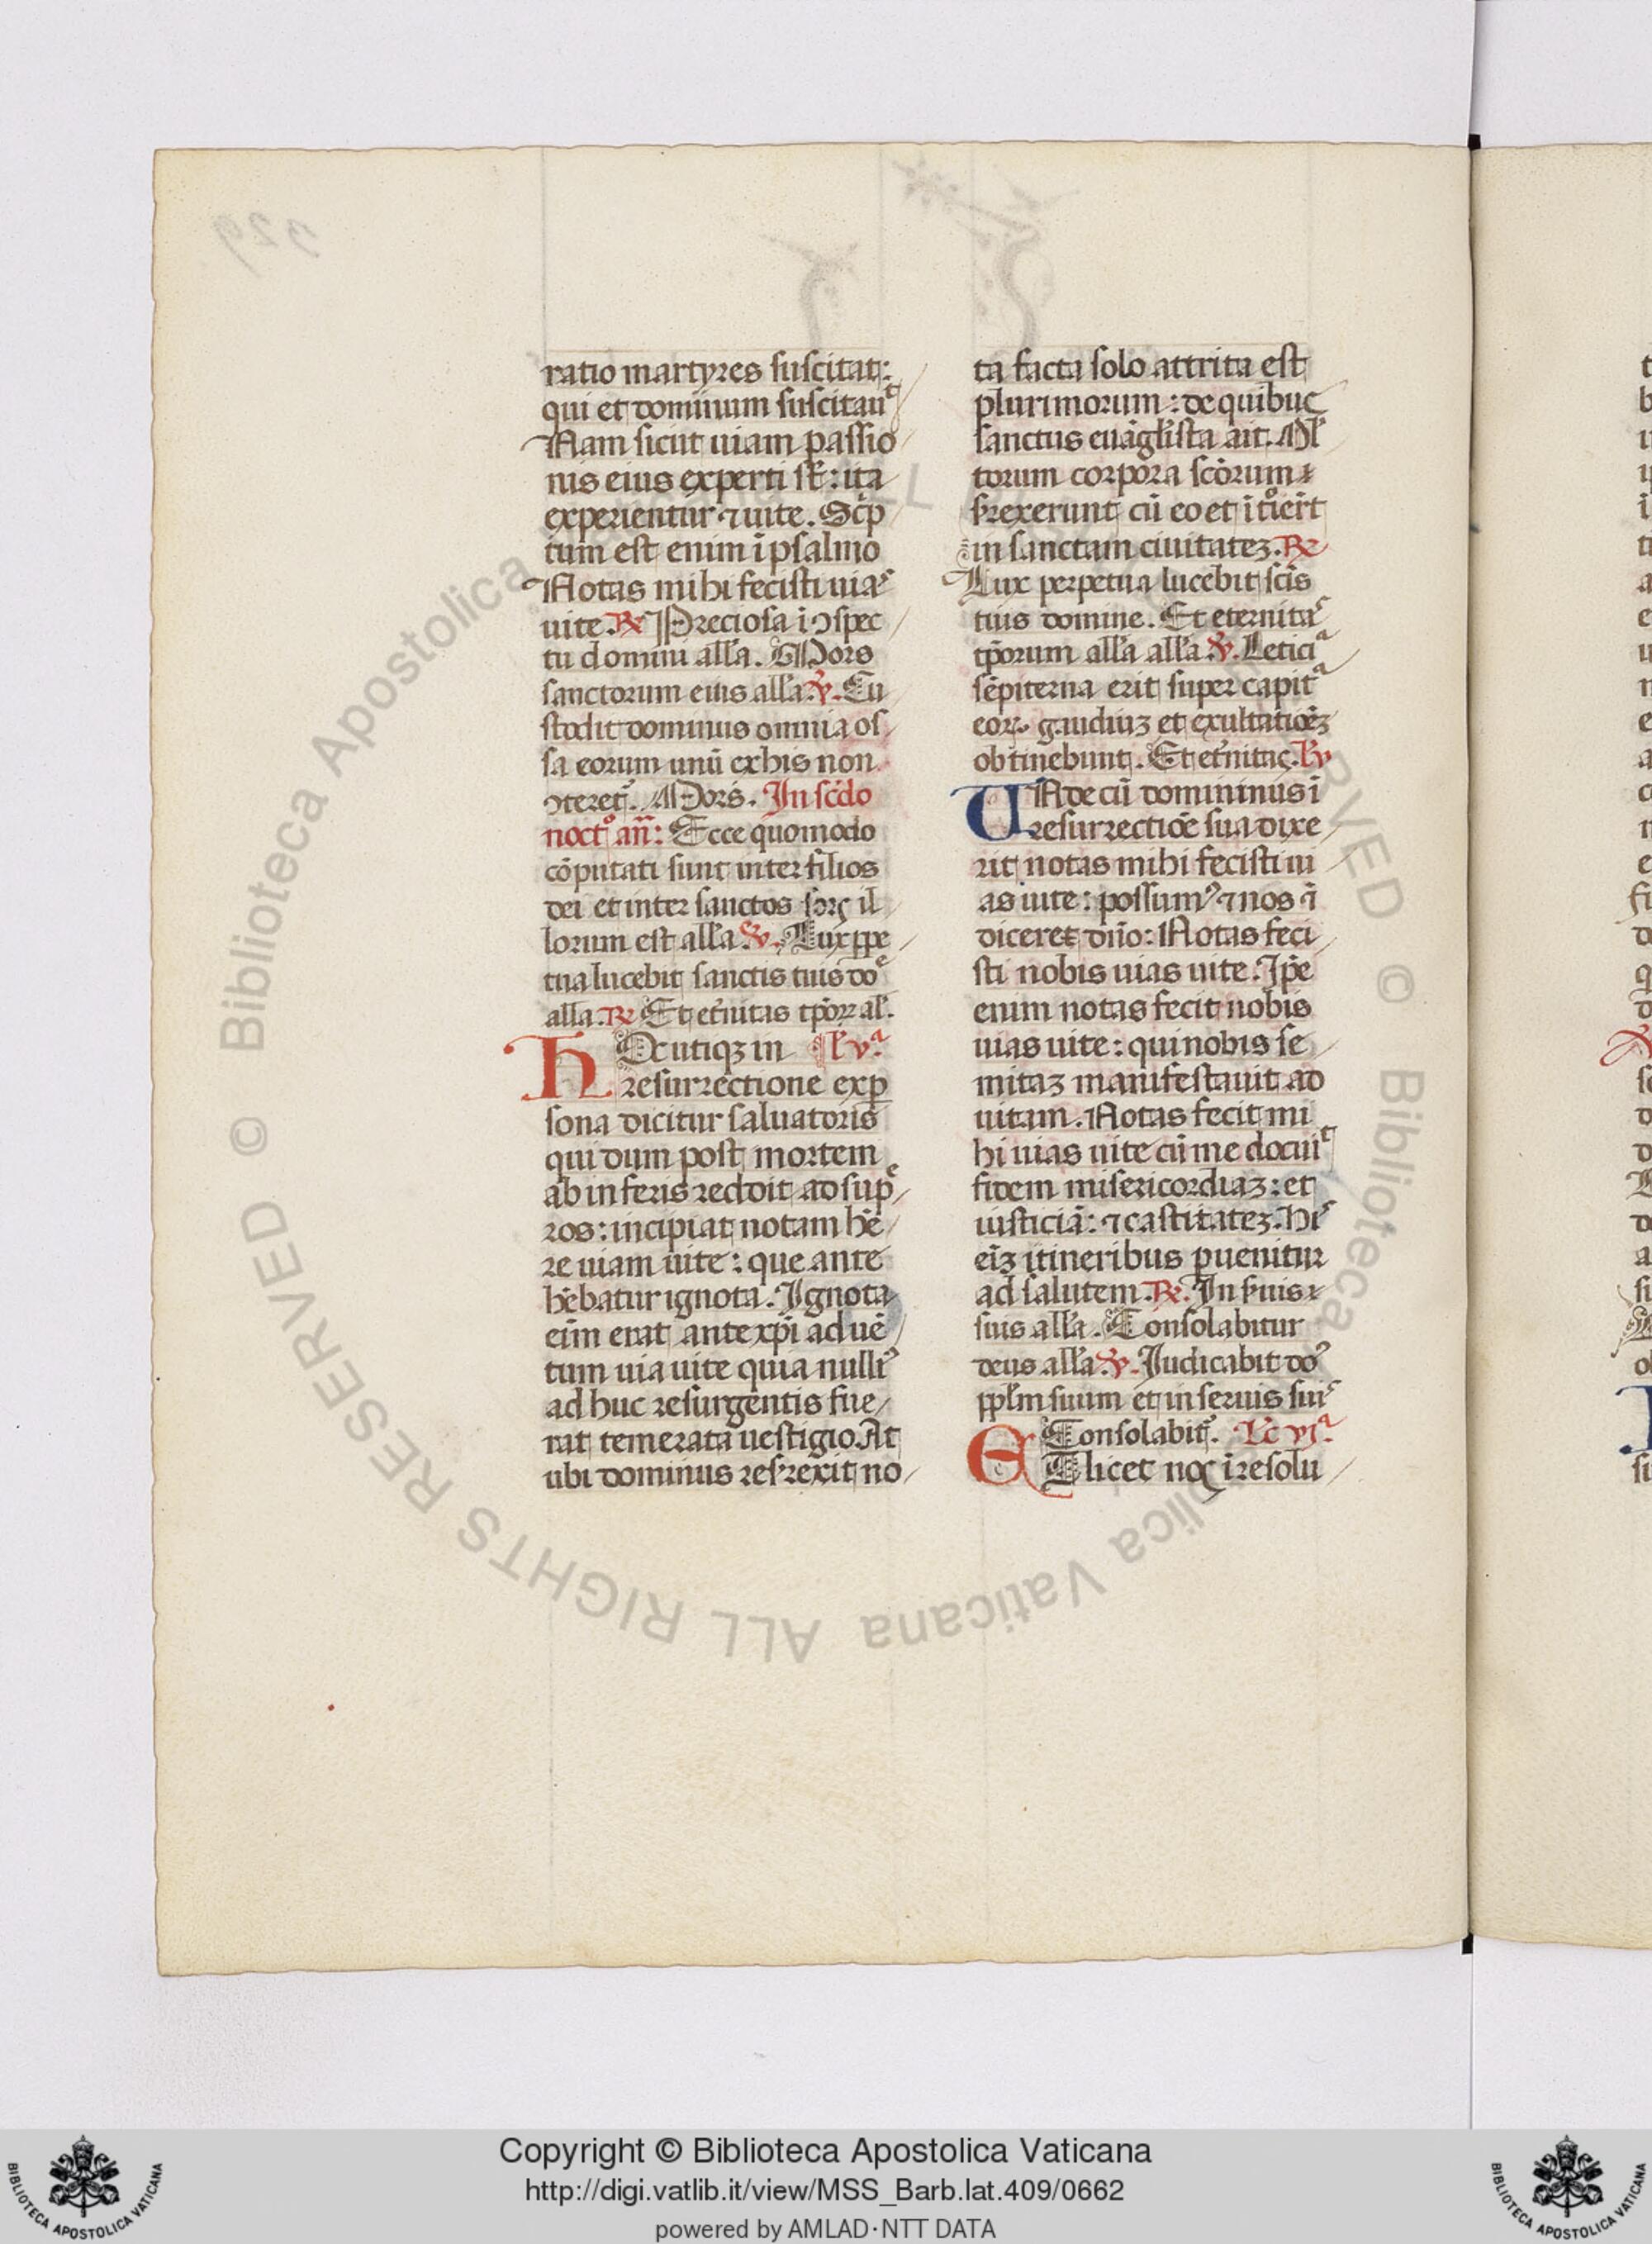 ratio martyres suscitat:
qui et dominum suscitauͭ
Nam sicut uiam passio
nis eius experti st̄: ita
experientur ⁊ uite. Sc̄p
tum est enim ī psalmo
Notas mihi fecisti uiaˢ
uite. ℞ Preciosa i ↄspec
tu domini all'a. Mors
sanctorum eius all'a. ℣. Cu
stodit dominus omnia os
sa eorum unū ex his non
ↄteret᷑. Mors̄. In scd̄o
noctº an̄: Ecce quomodo
cōputati sunt inter filios
dei et inter sanctos sorς il
lorum est all'a ℣. Lux ꝑpe
tua lucebit sanctis tuis doᵉ
alla. ℞ Et et̄nitas tp̄oꝝ al'.
HEc utiqꝫ in l' vᵃ
resurrectione ex ꝑ
sona dicitur saluatoris
qui dum post mortem
ab inferis reddit ad supᵉ
ros: incipiat notam hē
re uiam uite: que ante
hēbatur ignota. Ignota
eīm erat ante xp̄i aduē
tum uia uite quia nulliꝰ
ad huc resurgentis fue
rat temerata uestigio. At
ubi dominus resr̄rexit no
ta facta solo attrita est
plurimorum: de quibus
sanctus euāgl'ista ait. Ml'
torum corpora sc̄orum r
sr̄rexerunt cū eo et ītºiert̄
in sanctam ciuitateꝫ. ℞
Lux perpetua lucebit sc̄is
tuis domine. Et eternitaˢ
tp̄orum all'a all'a ℣. Leticiᵃ
sēpiterna erit super capitᵃ
eoꝝ. gaudiuꝫ et exultatiōeꝫ
obtinebunt. Et et̄nitaς. l' v
UNde cū domininus ī
resurrectiōe sua dixe
rit notas mihi fecisti ui
as uite: possumꝰ ⁊ nos ā
diceret dn̄o: Notas feci
sti nobis uias uite. Ip̄e
enim notas fecit nobis
uias uite: qui nobis se
mitaꝫ manifestauit ad
uitam. Notas fecit mi
hi uias uite cū me docuiͭ
fidem misericordiaꝫ: et
iusticiā: ⁊ castitateꝫ. Hiˢ
eīꝫ itineribus ꝑuenitur
ad salutem. ℞. In s̄uis r
suis all'a. Consolabitur
deus all'a ℣. Iudicabit doˢ
ppl'm suum et in seruis suiˢ
Consolabit᷑. Lc vjᵃ
ET licet noς ī resolu
Copyright © Biblioteca Apostolica Vaticana
http://digi.vatlib.it/view/MSS_Barb.lat.409/0662
powered by AMLAD·NTT DATA